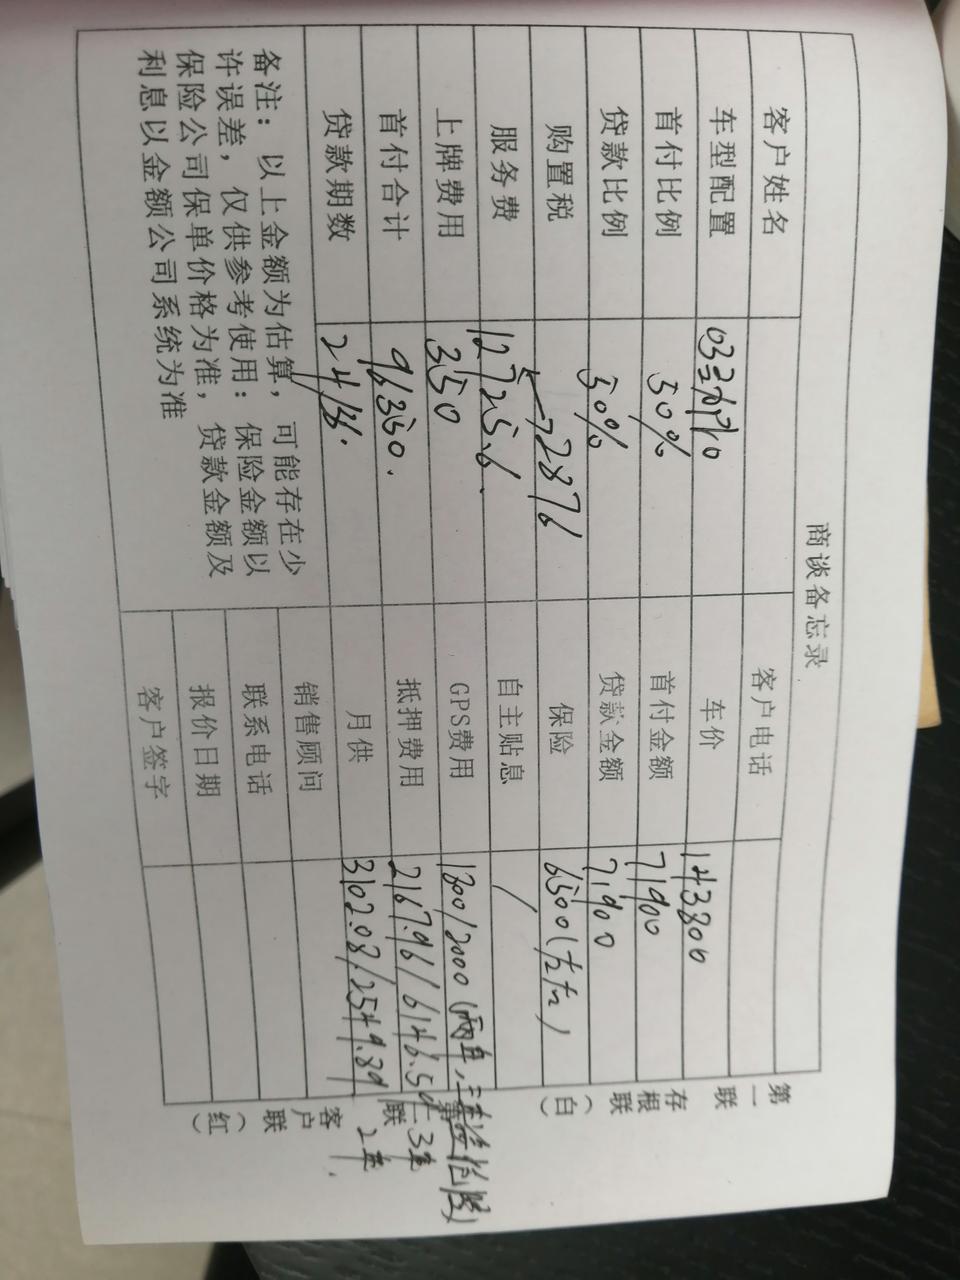 商谈备忘录
客户姓名 客户电话
车型配置 车价 143800
首付比例 50% 首付金额 71900
贷款比例 50% 贷款金额 71900
购置税 保险 6500
服务费 12725.6 自主贴息 /
上牌费用 350 GPS费用 1800/2000(两年,三年
首付合计 96350. 抵押费用 2167.96/6146.5
贷款期数 24/36. 月供 3102.08/2549.89
备注: 以上金额为估算,可能存在少
许误差,仅供参考使用:保险金额以
保险公司保单价格为准,贷款金额及
利息以金额公司系统为准
销售顾问
联系电话
报价日期
客户签字
3年
2年.
第一联
存根联
(白)
联
客户联
(红)